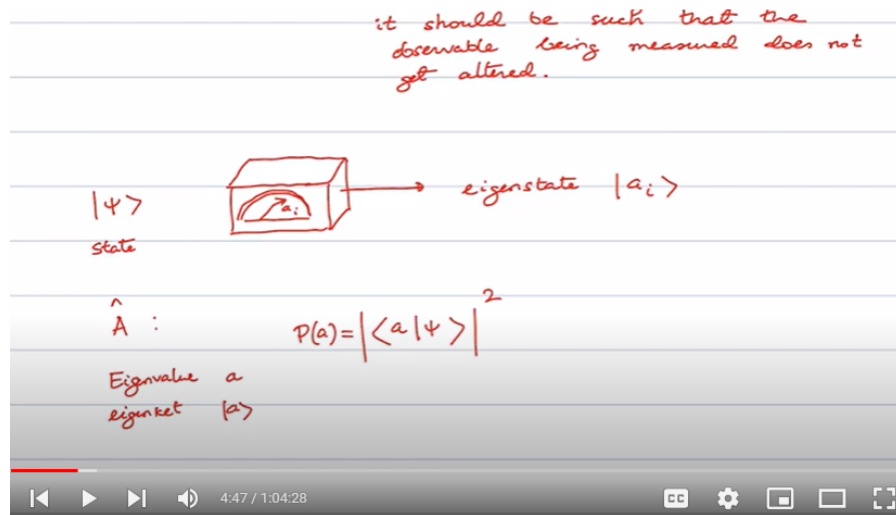 it should be such that the
observable being measured does not
get altered.
|ψ>
state
a_i
eigenstate |a_i>
Â :
P(a) = |<a|ψ>|^2
Eigenvalue a
eigenket |a>
4:47 / 1:04:28
CC